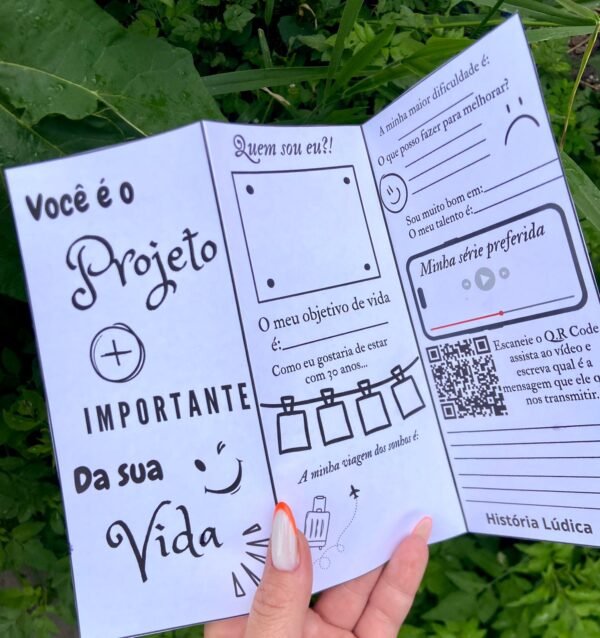 Você é o
Projeto
+
IMPORTANTE
Da sua
Vida
Quem sou eu?!
O meu objetivo de vida
é:
Como eu gostaria de estar
com 30 anos...
A minha viagem dos sonhos é:
A minha maior dificuldade é:
O que posso fazer para melhorar?
Sou muito bom em:
O meu talento é:
Minha série preferida
Escaneie o Q.R Code
assista ao vídeo e
escreva qual é a
mensagem que ele
nos transmitir.
História Lúdica